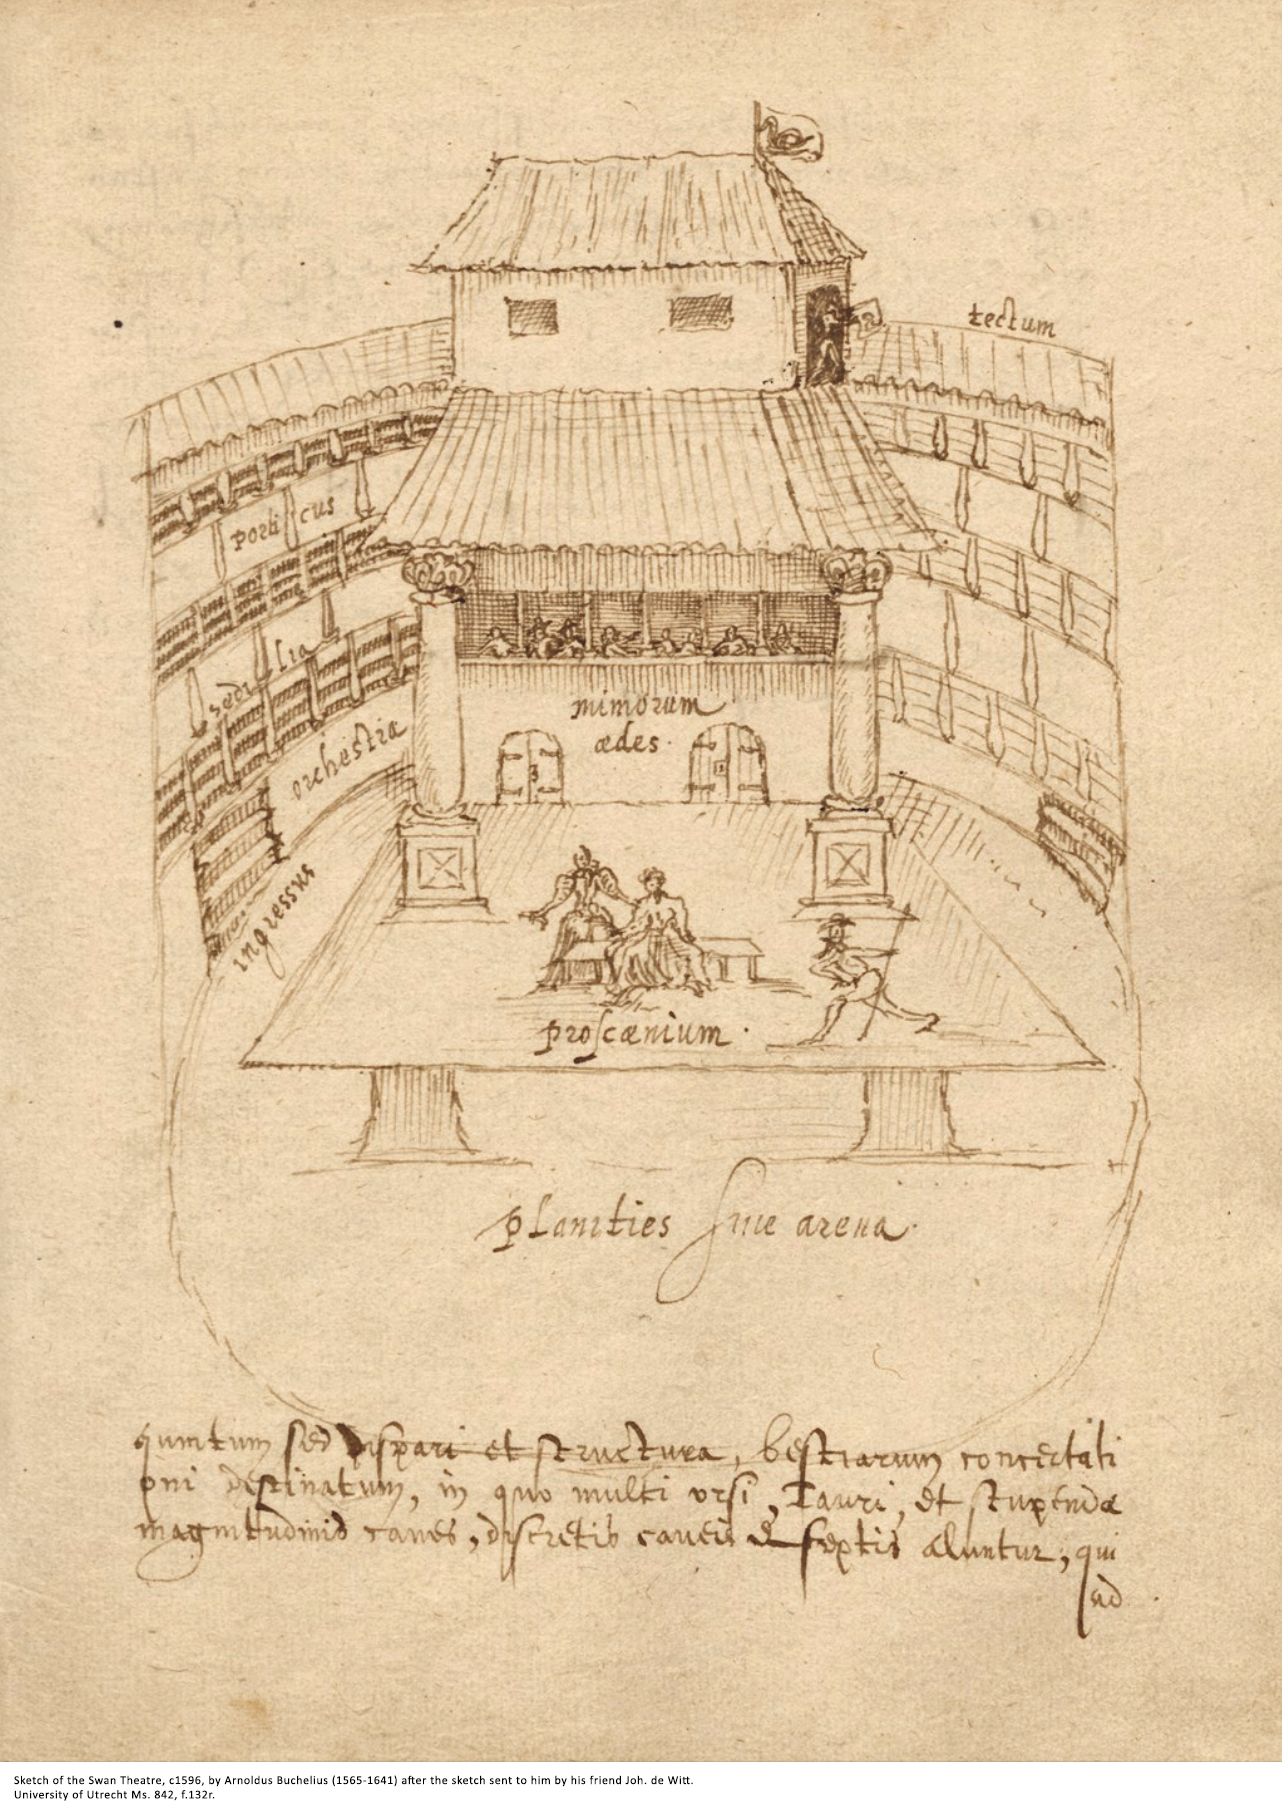 tectum
porticus
sedilia
orchestra
mimorum
ædes.
ingressus
proscænium.
planities sive arena.
quintum sed dispari et structura, bestiarum concertati
oni destinatum, in quo multi ursi, Tauri, et stupendæ
magnitudinis canes, discretis caveis & septis aluntur, qui
ad
Sketch of the Swan Theatre, c1596, by Arnoldus Buchelius (1565-1641) after the sketch sent to him by his friend Joh. de Witt.
University of Utrecht Ms. 842, f.132r.